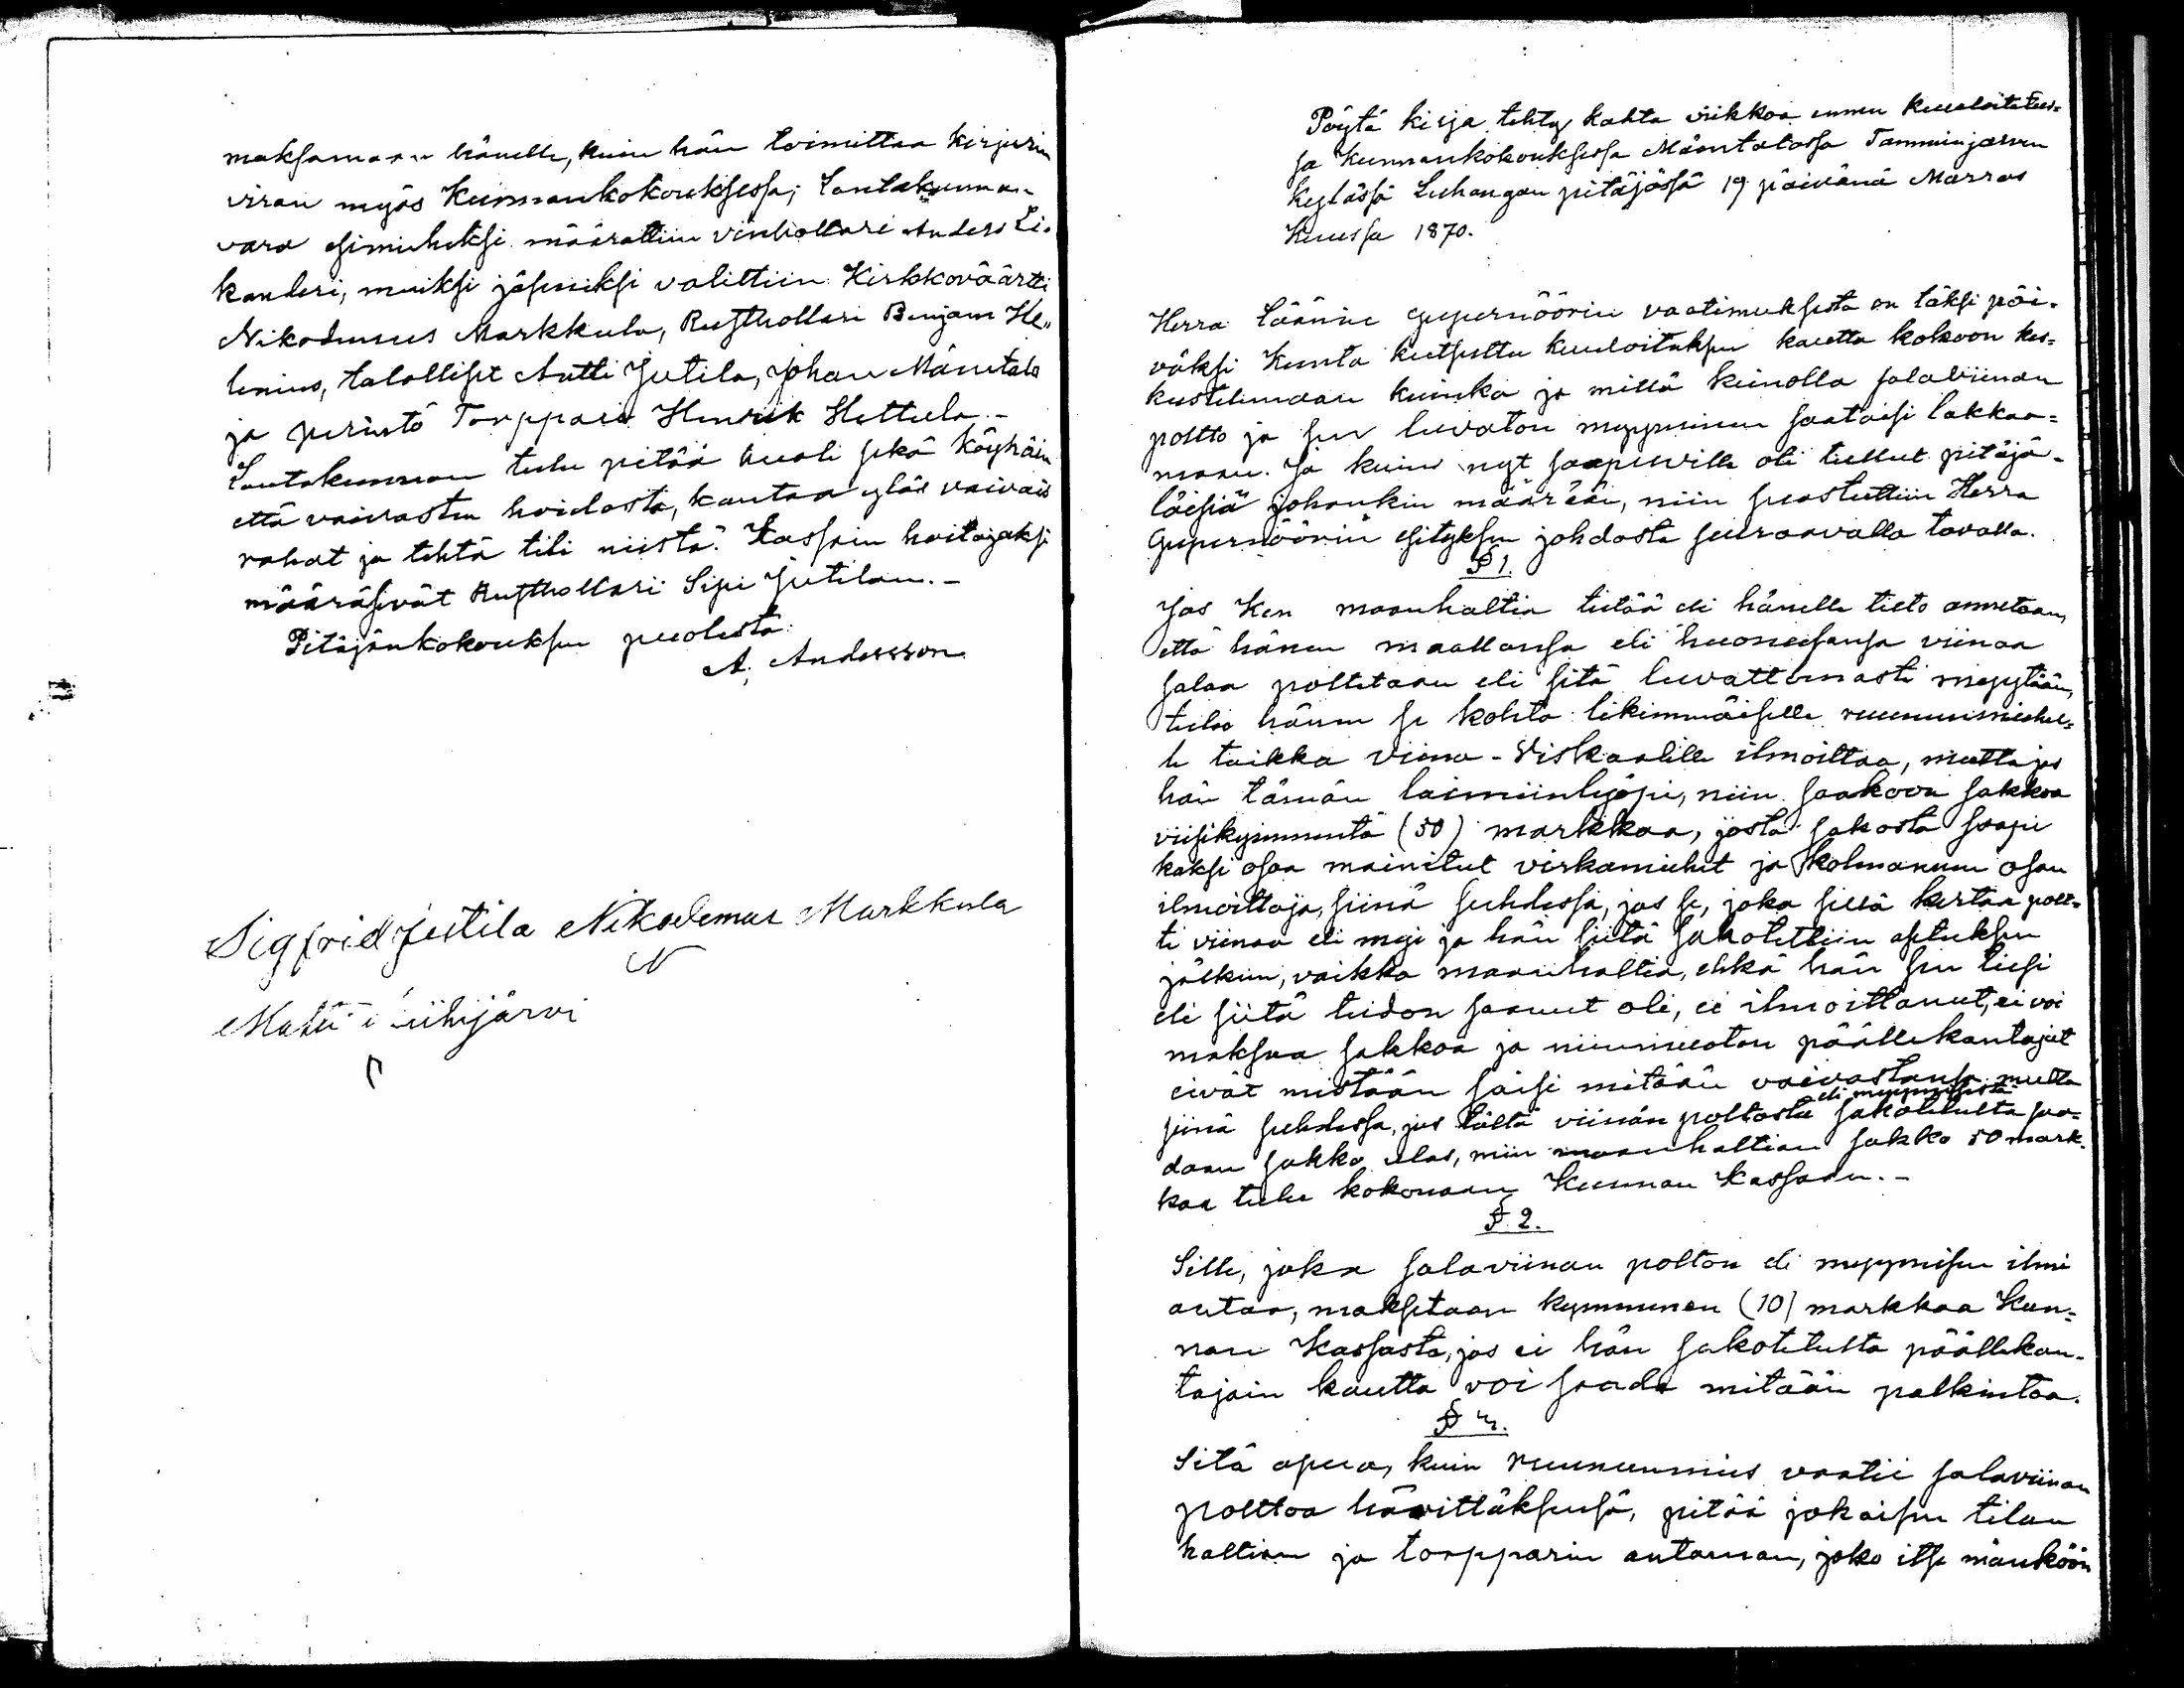 maksamaan hänelle, kuin hän toimittaa kirjurin
viran myös Kunnankokouksessa; Lautakunnan
vara esimieheksi määrättiin vinhottari Anders Li-
kanderi, muiksi jäseniksi valittiin Kirkkoväärtti
Nikodemus Markkula, Rusthollari Benjam He„
lenius, talolliset Antti Jutila, Johan Mäntala
ja Torppari Henrik Hettula.-
Lautakunnan tulee pitää huoli sekä Köyhäin
että vaivasten hoidosta, kantaa ylös vaivais
rahat ja tehtä tili niistä. Kassain hoitajaksi
määräsivät Rusthollari Sipi Jutilan.-
Pitäjänkokouksen puolesta:
A. Andersson
Sigfrid Jutila Nikodemus Markkula
N
Matti
Pöytä kirja tehty kahta viikkoa ennen kuuloitetus=
sa Kunnankokouksessa Mäntalassa Tamminjärven
kylässä Luhangan pitäjässä 19 päivänä Marras
Kuussa 1870.
Herra Läänin Gupernöörin vaatimuksesta on täksi päi-
väksi Kunta kutsuttu kuuloituksen kautta kokoon kes=
kustelemaan kuinka ja millä keinolla salaviinan
poltto ja sen luvaton myyminen saataisi lakkaa=
maan. Ja kuin nyt saapuville oli tullut pitäjä-
läisiä johonkin määrään, niin suostuttiin Herra
Gupernöörin esityksen johdosta seuraavalla tavalla.
§ 1.
Jos Ken maanhaltia tietää eli hänelle tieto annetaan,
että hänen maallansa eli huoneesansa viinaa
salaa poltetaan eli sitä luvattomasti myytään,
tulee hänen se kohta likimmäiselle ruununmiehel=
le taikka Viina-Viskaalille ilmoittaa, mutta jos
hän tämän laiminlyöpi, niin saakoon sakkoa
viisikymmentä (50) markkaa, josta sakosta saapi
kaksi osaa mainitut virkamiehet ja kolmannen osan
ilmoittaja, siinä suhdessa, jos se, joka sillä kertaa polt=
ti viinaa eli myi ja hän siitä sakotettiin asetuksen
jälkeen, vaikka maanhaltia, ehkä hän sen tiesi
eli siitä tiedon saanut oli, ei ilmoittanut, ei voi
maksaa sakkoa ja niinmuoton päällekantajat
eivät mistään saisi mitään vaivastansa mutta
siinä suhdessa, jos tältä viinan poltosta eli myymisestä sakotetulta saa=
daan sakko ulos, niin maanhaltian sakko 50 mark.
kaa tulee kokonaan Kunnan Kassaan.-
§ 2.
Sille, joka salaviinan polton eli myymisen ilmi
antaa, maksetaan kymmenen (10) markkaa Kun=
nan Kassasta, jos ei hän sakotetulta päällekan-
tajain kautta voi saada mitään palkintoa.
§ 3.
Sitä apua, kuin ruununmies vaatii salaviinan
polttoa hävittäksensä, pitää jokaisen tilan
haltian ja torpparin antaman, joko itse mänköön